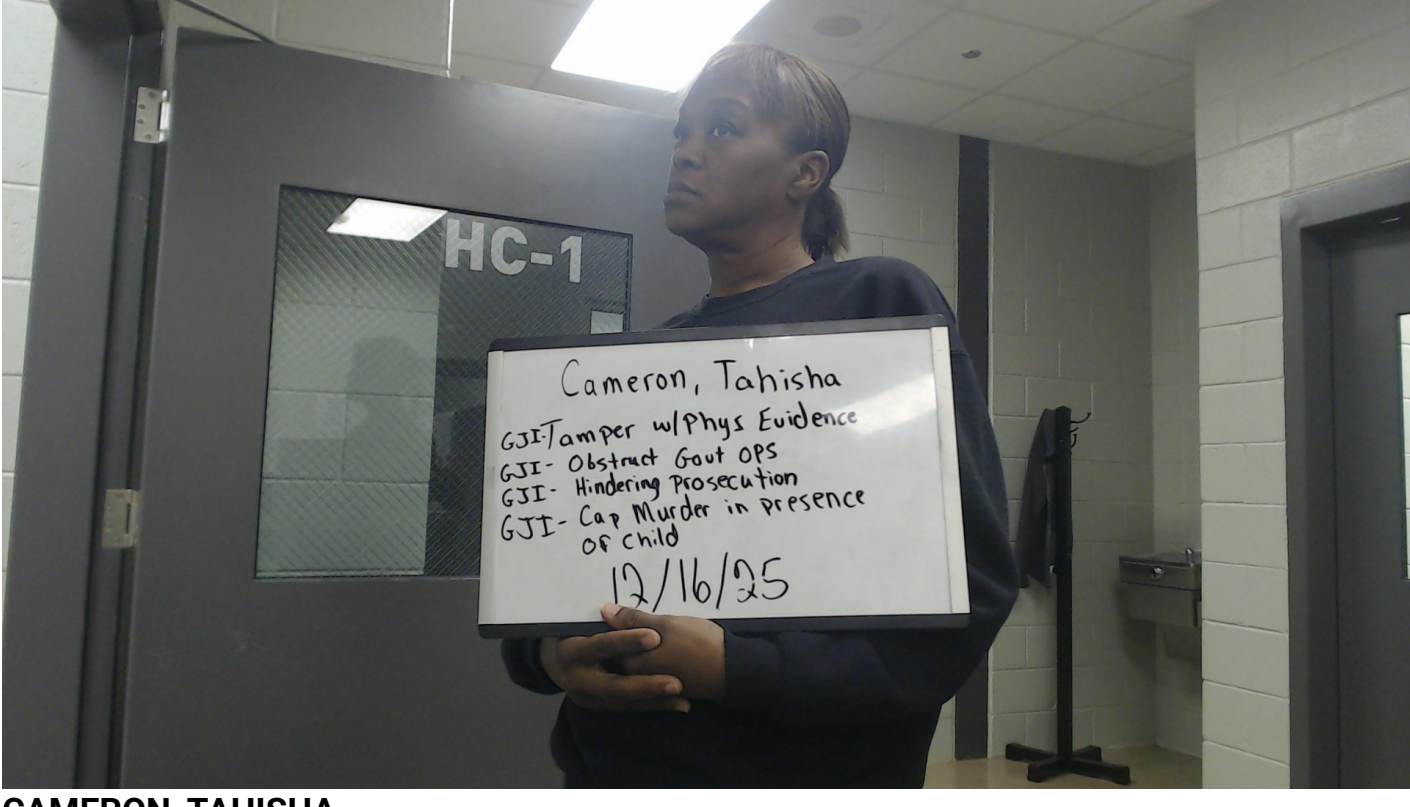 HC-1
Cameron, Tahisha
GJI-Tamper w/Phys Evidence
GJI- Obstruct Govt OPS
GJI- Hindering Prosecution
GJI- Cap Murder in presence
of child
12/16/25
CAMERON, TAHISHA